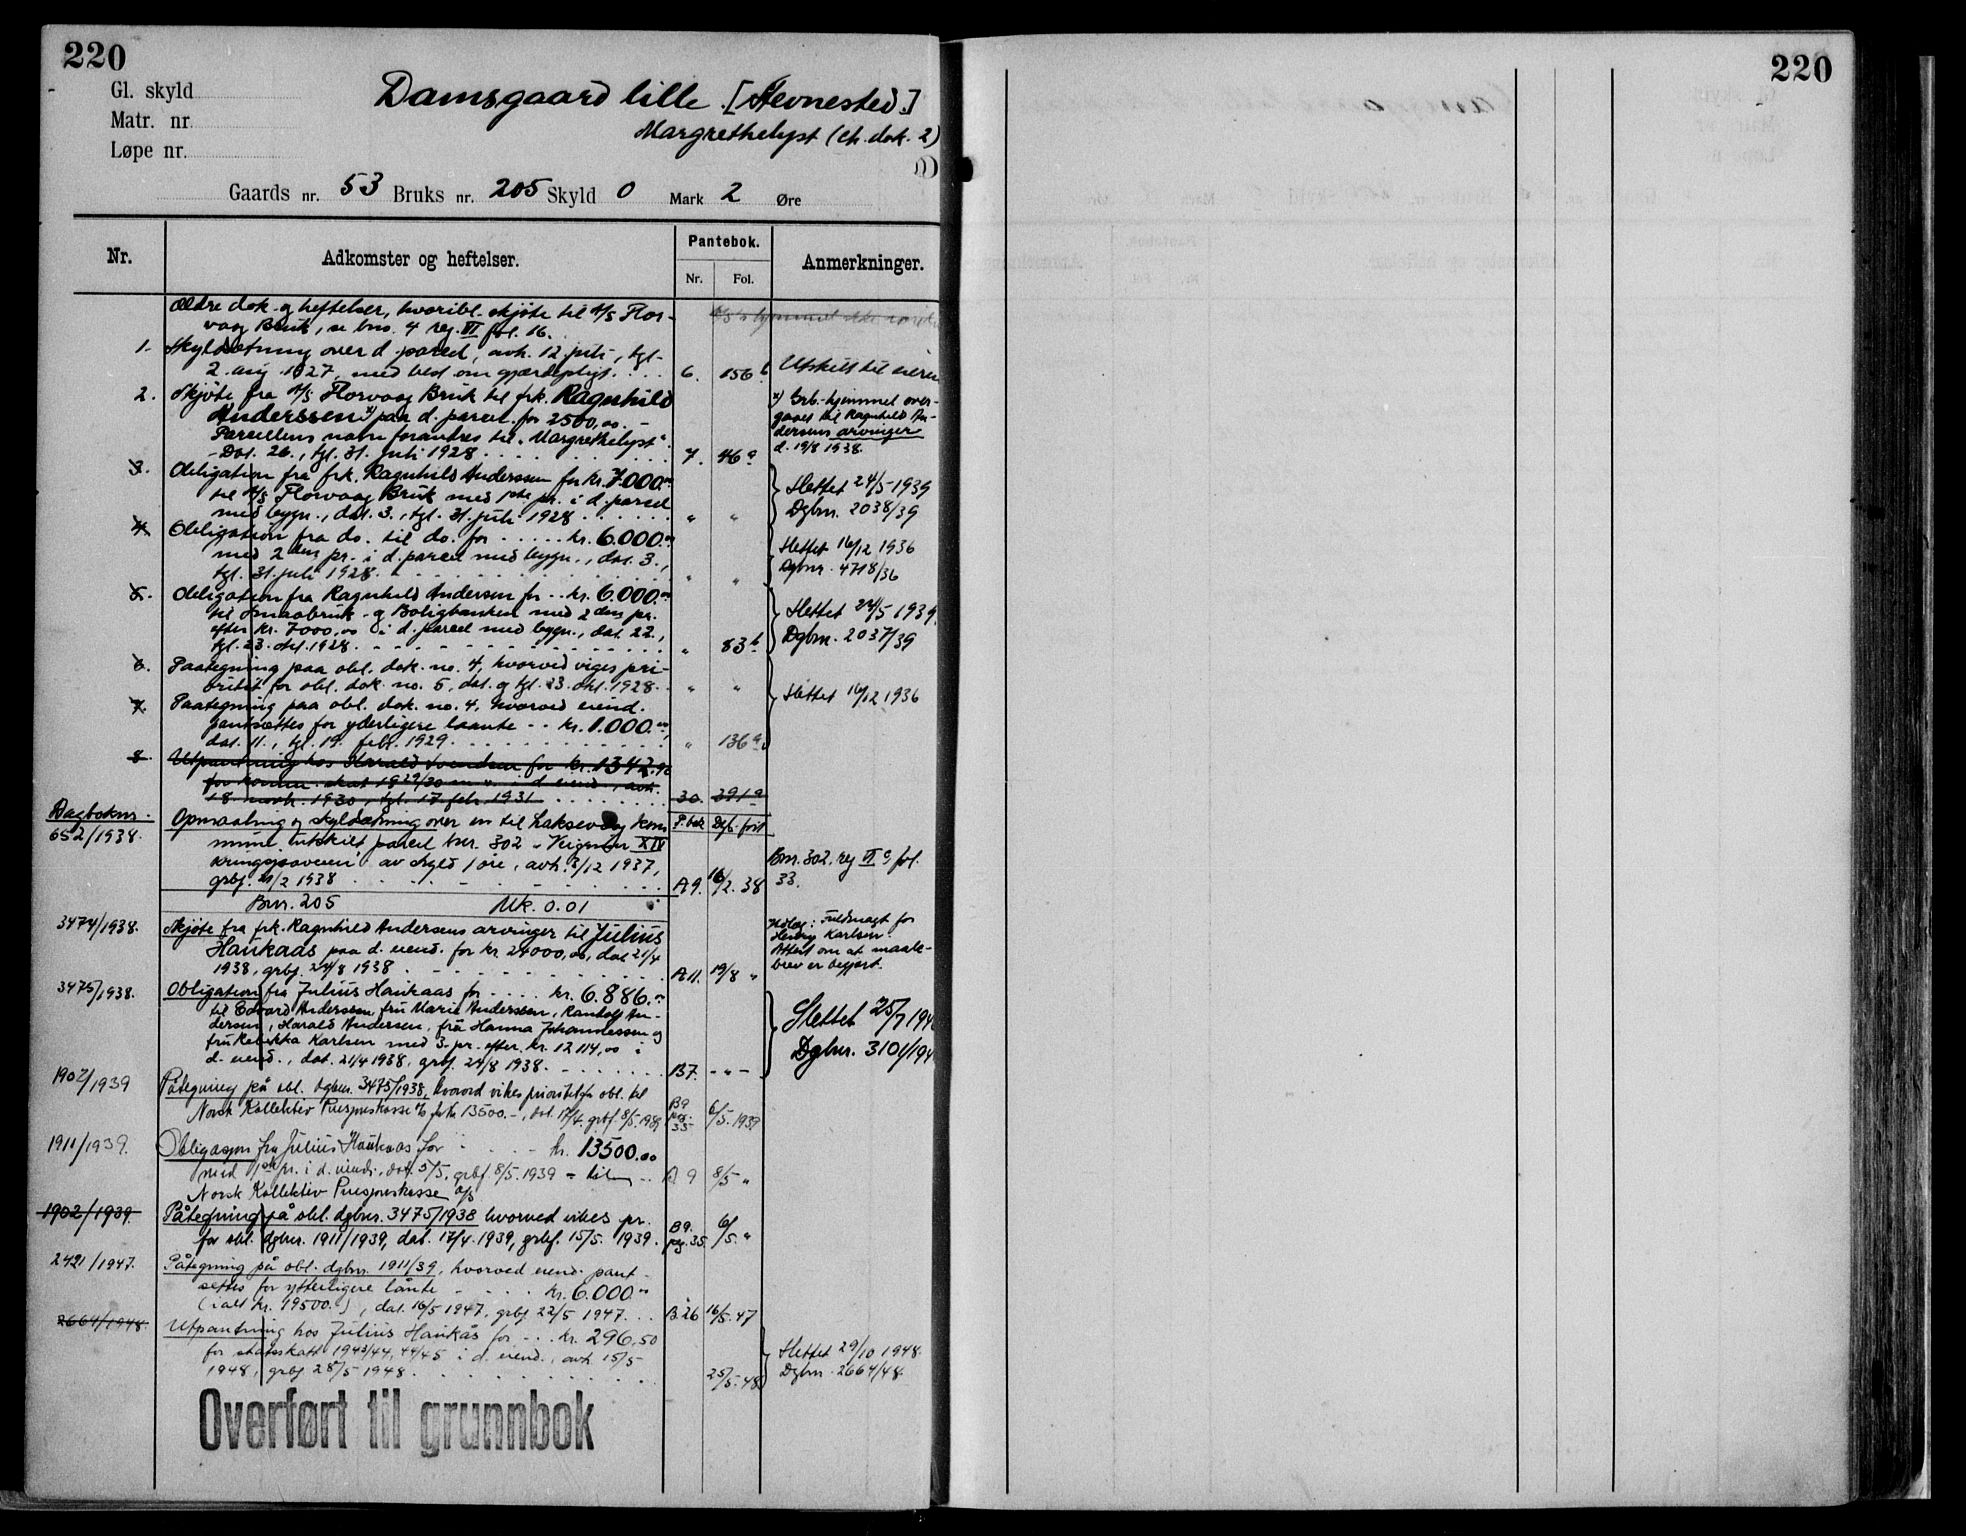 220
220
Gl. skyld
Damsgaard lille. [Hevnested.]
Matr. nr
Margrethelyst (ch. dok. 2)
Løpe nr.
Gaards nr. 53 Bruks nr. 205 Skyld 0 Mark 2 Øre
Nr. Adkomster og heftelser. Pantebok. Anmerkninger.
Nr. Fol.
Ældre dok. og heftelser, hvoribl. skjøte til A/S Flor-
vaag Bruk, se bno. 4 reg. VI fol. 16.
1. Skyldsetning over d. parcel, avh. 12 juli, tgl.
2. aug. 1927, med best om gjærdepligt. 6. 156 b Utskilt til eieren
2. Skjøte fra A/S Florvaag Bruk til frk. Ragnhild
Anderssen x) paa d. parcel for 2500,00. –
Parcellens navn forandres til "Margrethelyst".
– Dat. 26., tgl. 31. juli 1928 7. 46 a
x) Grb.-hjemmel over-
gaaet til Ragnhild An-
dersens arvinger
d. 19/8 1938.
3. Obligation fra frk. Ragnhild Anderssen for kr. 7.000.00
til A/S Florvaag Bruk med 1ste pr. i d. parcel
med bygn., dat. 3., tgl. 31. juli 1928 " "
Slettet 24/5-1939
Dgbnr. 2038/39
4. Obligation fra do. til do. for kr. 6.000.00
med 2den pr. i d. parcel med bygn., dat. 3.,
tgl. 31. juli 1928. " "
Slettet 16/12 1936
Dgbnr. 4718/36
5. Obligation fra Ragnhild Andersen for kr. 6.000.00
til Smaabruk- og Boligbanken med 2den pr.
efter kr. 7000,00 i d. parcel med bygn., dat. 22.,
tgl. 23. okt. 1928. " 83 b
Slettet 24/5 1939.
Dgbnr. 2037/39
6. Paategning paa obl. dok. no. 4, hvorved viges pri-
oritet for obl. dok. no. 5, dat. og tgl. 23. okt. 1928. " "
7. Paategning paa obl. dok. no. 4, hvorved eiend.
pantsættes for yderligere laante kr. 1.000.00,
dat. 11., tgl. 19. febr. 1929. " 136 a
Slettet 16/12 1936
8. Utpantning hos Harald Svendsen for kr. 1342.92
for komm. skat 1929/30 d. eiend., avh.
18. novb. 1930, tgl. 17. feb. 1931 30. 391 a
Dagboknr.
652/1938.
Opmaaling og skyldsætning over en til Laksevaag kom
mune utskilt parcel bnr. 302 XIV
av skyld 1 øre, avh. 3/12 1937,
grbf. 21/2 1938 A9. 16/2. 38
Bnr. 302, reg VI c fol.
33.
Bnr. 205 Mk. 0.01
3474/1938. Skjøte fra frk. Ragnhild Andersens arvinger til Julius
Haukaas paa d. eiend. for kr. 24000,00, dat. 21/4
1938, grbf. 24/8 1938 A11. 19/8 "
Fuldmagt for
Henry Karlsen.
Attest om at maale-
brev er begjært.
3475/1938. Obligation fra Julius Haukaas for kr. 6.886.00
til Edvard Anderssen, fru Marie Anderssen, Randolf An-
dersen, Harald Andersen, fru Hanna Johannessen og
fru Rebekka Karlsen med 3. pr. efter kr. 12114,00 i
d. eiend., dat. 21/4 1938, grbf. 24/8 1938. B7. - " -
Slettet 25/7 194
Dgbnr. 3101/194
1902/1939 Påtegning på obl. dgbnr. 3475/1938, hvorved vikes prioritet for obl. til
Norsk Kollektiv Pensjonskasse A/S for kr 13500.–, dat. 17/4. grbf. 8/5 1939 B9 pag. 35 6/5. 1939
1911/1939. Obligasjon fra Julius Haukaas for kr. 13500.00
med 1ste pr. i d. eiend., dat. 5/5, grbf. 8/5. 1939 – til A 9 8/5 "
Norsk Kollektiv Pensjonskasse A/S
1902/1939. Påtegning på obl. dgbnr. 3475/1938 hvorved vikes pr.
for obl. dgbnr. 1911/1939, dat. 17/4. 1939, grbf. 15/5. 1939. B9. pag. 35. 6/5. "
2421/1947. Påtegning på obl. dgbnr. 1911/39, hvorved eiend. pant-
settes for ytterligere lånte kr. 6.000.00
(ialt kr. 19500.–), dat. 16/5 1947, grbf. 22/5 1947. B. 26 16/5. 47
2664/1948. Utpantning hos Julius Haukås for kr. 296,50
for statsskatt 1943/44, 44/45 i d. eiend., avh. 15/5
1948, grbf 28/5 1948. 25/5. 48
Slettet 29/10 1948.
Dgbnr. 2664/48.
Overført til grunnbok